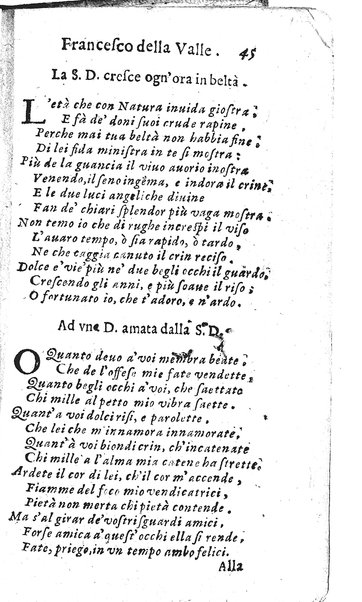 Francesco della Valle. 45
La S. D. cresce ogn'ora in beltà.
L'età che con Natura inuida giostra,
E fà de' doni suoi crude rapine.
Perche mai tua beltà non habbia fine,
Di lei fida ministra in te si mostra:
Più de la guancia il viuo auorio inostra
Venendo, il seno ingẽma, e indora il crine,
E le due luci angeliche diuine
Fan de' chiari splendor più vaga mostra.
Non temo io che di rughe increspi il viso
L'auaro tempo, ò sia rapido, ò tardo,
Ne che caggia canuto il crin reciso.
Dolce e' vie' più ne' due begli occhi il guardo,
Crescendo gli anni, e più soaue il riso;
O fortunato io, che t'adoro, e n'ardo.
Ad vna D. amata dalla S. D.
O Quanto deuo a' voi membra beate,
Che de l'offese mie fate vendette,
Quanto begli occhi a' voi, che saettate
Chi mille al petto mio vibra saette.
Quant'a voi dolci risi, e parolette.
Che lei che m'innamora innamorate,
Quant'à voi biondi crin, ch'incatenate
Chi mille a l'alma mia catene ha strette,
Ardete il cor di lei, ch'il cor m'accende,
Fiamme del foco mio vendicatrici,
Pietà non merta chi pietà contende.
Ma s'al girar de' vostri sguardi amici,
Forse amica a' quest'occhi ella si rende,
Fate, priego, in vn tempo ambo felici.
Alla